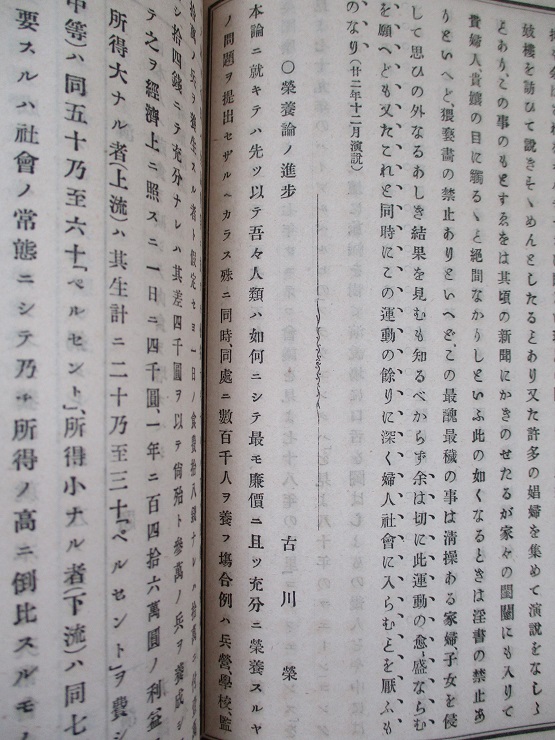 妓樓を訪ひて説きそゝめんとしたるとあり又許多の娼婦を集めて演説をなしゝ
とあり、この事のもとすゑをは其頃の新聞にかきのせたるが家々の閨闥にも入りて
貴婦人貴孃の目に觸るゝと絶間なかりしといふ此の如くなるときは淫書の禁止あ
りといへど、猥褻畵の禁止ありといへど、この最醜最穢の事は清操ある家婦、子女を侵
して思ひの外なるあしき結果を見むも知るべからず余は切に此運動の愈盛ならむ
を願へども又たこれと同時にこの運動の餘りに深く婦人社會に入らむとを厭ふも
のなり(廿二年十二月演説)
〇榮養論ノ進歩 古川榮
本論ニ就キテハ先ツ以テ吾々人類ハ如何ニシテ最モ廉價ニ且ツ充分ニ榮養スルヤ
ノ問題ヲ提出セザルヘカラス殊ニ同時、同處ニ數百千人ヲ養フ塲合例ハ兵營學校、監
シ拾四錢ニテ充分ナレハ其差四千圓ヲ以テ尚殆ト參萬ノ兵ヲ養成シ
テ之ヲ經濟上ニ照スニ一日ニ四千圓、一年ニ百四拾六萬圓ノ利益
所得大ナル者(上流)ハ其生計ニ二十乃至三十「ペルセント」ヲ費シ
中等)ハ同五十乃至六十「ペルセント」、所得小ナル者(下流)ハ同七
要スルハ社會ノ常態ニシテ乃チ所得ノ高ニ倒比スルモノ